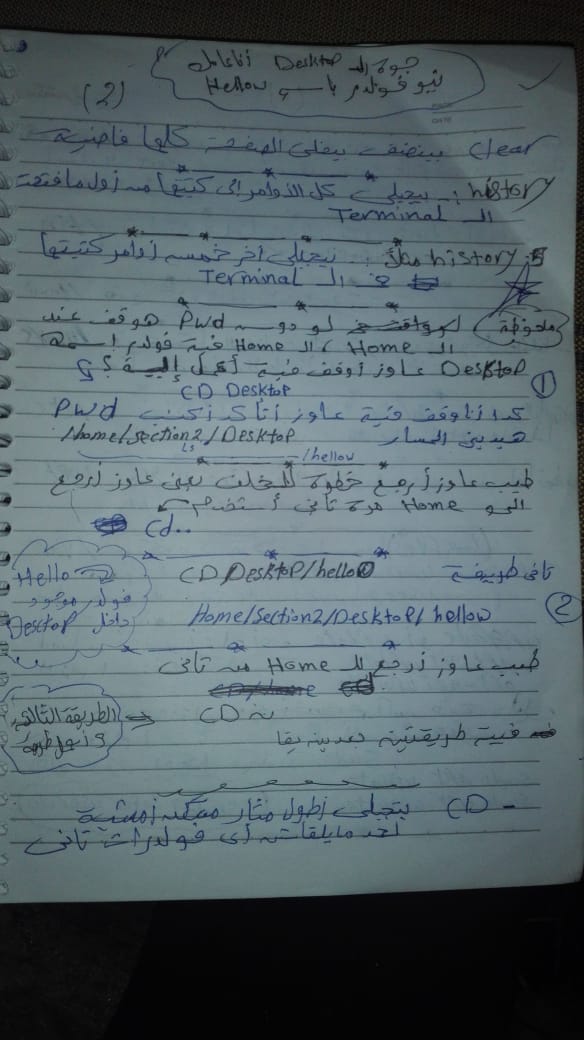 جوة الـ Desktop أنا عامل
نيو فولدر باسم Hellow
(2)
Clear بينضف بيخلى الصفحة كلها فاضية
history :- بيجبلى كل الأوامر الى كتبتها من أول ما فتحت
الـ Terminal
history 5 مثلاً :- بيجبلى أخر خمسه أوامر كتبتها
فى الـ Terminal
ملحوظة لو دوست Pwd هو وقف عند
الـ Home ، الـ Home فية فولدر اسمة
Desktop عاوز أوقف فية أعمل إلية ؟؟
CD Desktop
1
كدا أنا وقف فية عاوز أتأكد أكتب Pwd
هيديني المسار Home/section2/Desktop
/hellow
طيب عاوز أرجع خطوة للخلف يعنى عاوز أرجع
Home مرة تانى أستخدم
Cd..
تانى طريقة CD Desktop/hello
2
Home/section2/Desktop/hellow
Hello
فولدر موجود
داخل Desctop
طيب عاوز أرجع للـ Home من تانى
CD ~
الطريقة التالتة
فية طريقتين بعدين بقا
CD - بتجبلى أطول مسار ممكن أمشية
لحد ما يلقاش أى فولدرات تانى